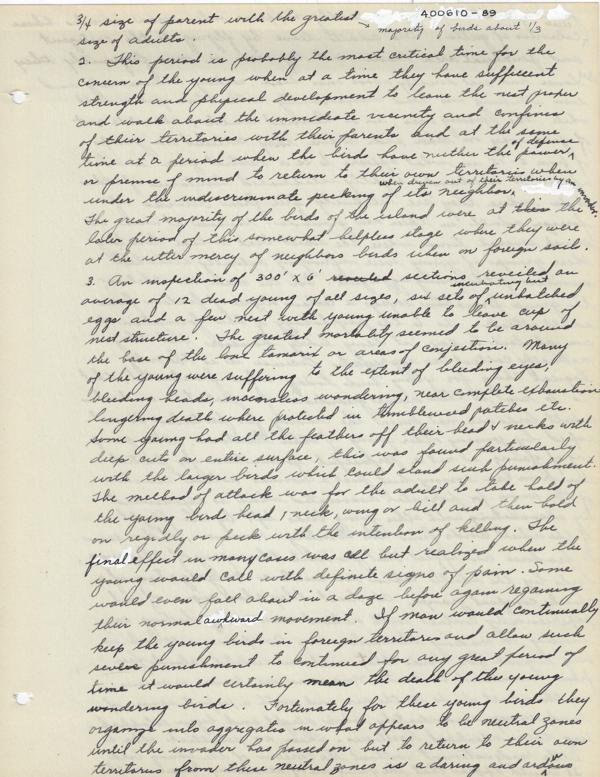 400610-89
3/4 size of parent with the greatest → majority of birds about 1/3
size of adults.
2. This period is probably the most critical time for the
concern of the young when at a time they have sufficient
strength and physical development to leave the nest proper
and walk about the immediate vicinity and confines
of their territories with their parents and at the same
time at a period when the bird have neither the power of defense
or premse of mind to return to their own territories when
under the indiscriminate pecking of its neighbor, when driven out of their territories by an invader.
The great majority of the birds of the island were at this the
later period of this somewhat helpless stage where they were
at the utter mercy of neighbors birds when on foreign soil.
3. An inspection of 300' x 6' revealed sections reveiled an
average of 12 dead young of all sizes, six sets of incubating but unhatched
eggs and a few nest with young unable to leave cup of
nest structure. The greatest mortality seemed to be around
the base of the lone tamarix or areas of conjestion. Many
of the young were suffering to the extent of bleeding eyes,
bleeding heads, wondering, near complete exhaustion
lingering death where protected in tumbleweed patches etc.
Some young had all the feathers off their head & necks with
deep cuts on entire surface, this was found particularly
with the larger birds which could stand such punishment.
The method of attack was for the adult to take hold of
the young bird head, neck, wing or bill and then hold
on regidly or peck with the intention of killing. The
final effect in many cases was all but realized when the
young would call with definite signs of pain. Some
would even fall about in a daze before again regaining
their normal awkward movement. If man would continually
keep the young birds in foreign territories and allow such
severe punishment to continued for any great period of
time it would certainly mean the death of these young
wondering birds. Fortunately for these young birds they
organize into aggregates in what appears to be neutral zones
until the invader has passed on but to return to their own
territorus from these neutral zones is a daring and arduous